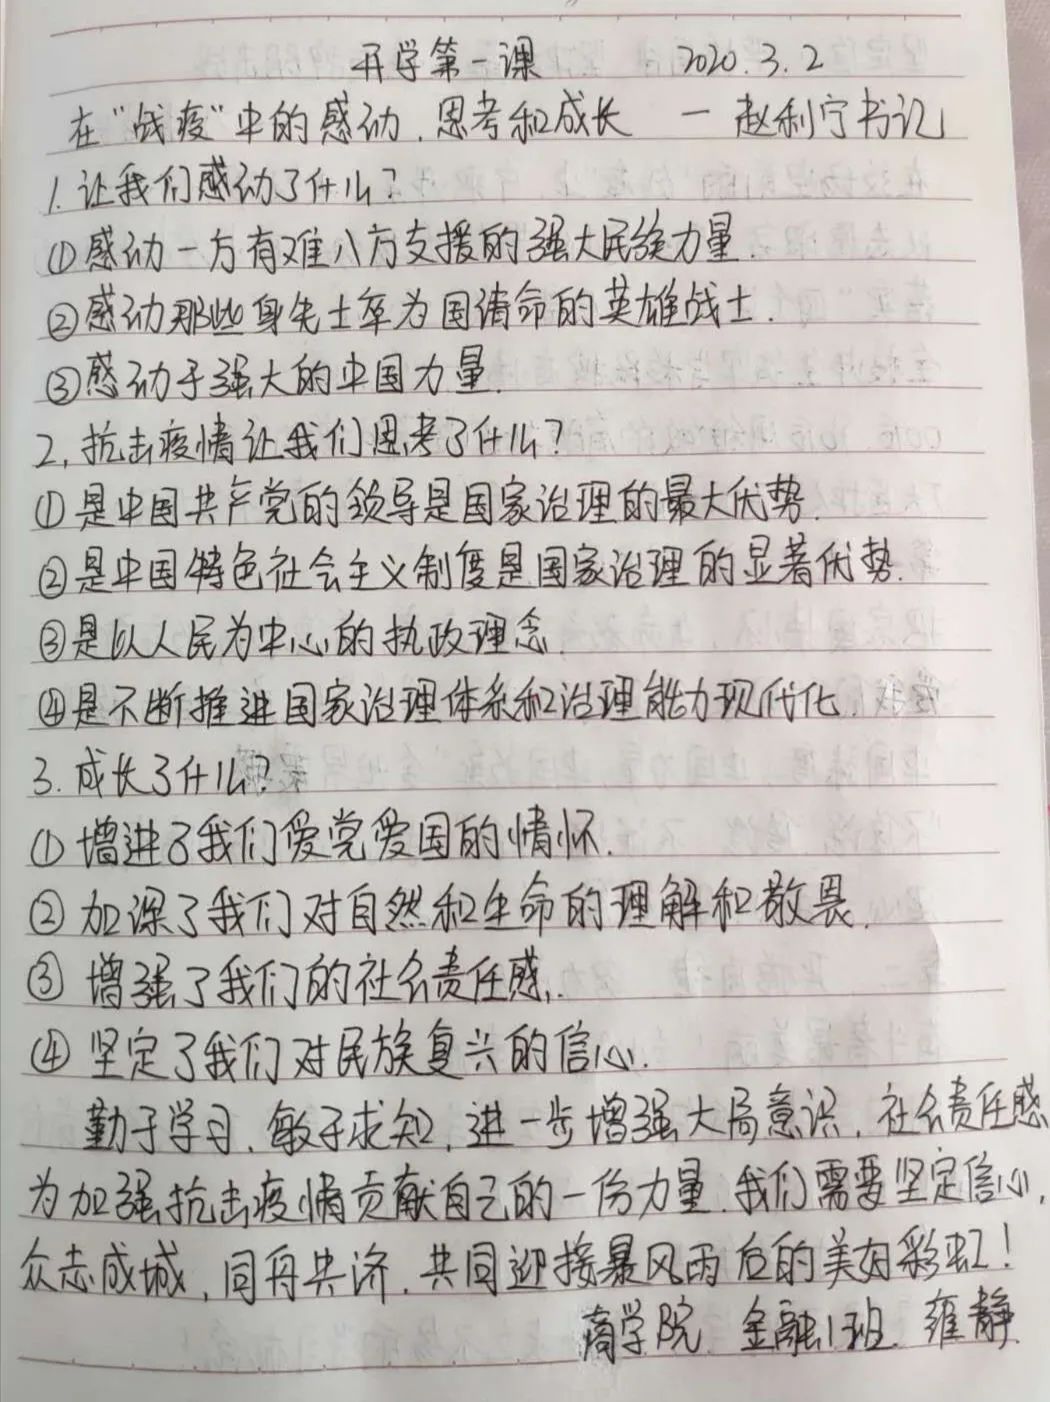 开学第一课 2020.3.2
在"战疫"中的感动,思考和成长 一 赵利宁书记
1.让我们感动了什么?
①感动一方有难八方支援的强大民族力量.
②感动那些身先士卒为国请命的英雄战士.
③感动于强大的中国力量.
2.抗击疫情让我们思考了什么?
①是中国共产党的领导是国家治理的最大优势.
②是中国特色社会主义制度是国家治理的显著优势.
③是以人民为中心的执政理念.
④是不断推进国家治理体系和治理能力现代化.
3.成长了什么?
①增进了我们爱党爱国的情怀.
②加深了我们对自然和生命的理解和敬畏.
③增强了我们的社会责任感.
④坚定了我们对民族复兴的信心.
勤于学习,敏于求知,进一步增强大局意识,社会责任感
为加强抗击疫情贡献自己的一份力量.我们需要坚定信心,
众志成城,同舟共济,共同迎接暴风雨后的美好彩虹!
商学院 金融1班 雍静